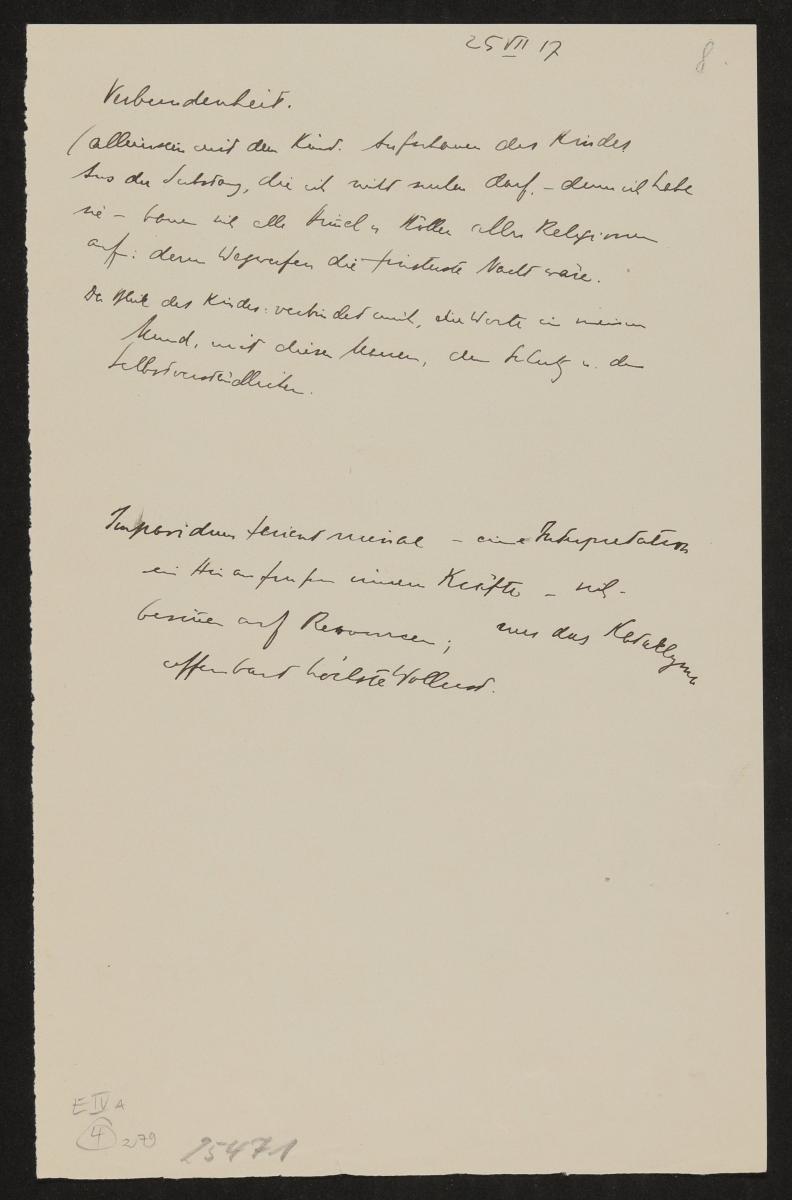 25 VII 17
8.
Verbundenheit.
(alleinsein mit dem Kind. Anschauen des Kindes
Aus der Substanz, die ich nicht nennen darf, – denn ich habe
sie – bauen sich alle Himel u Höllen aller Religionen
auf: deren Wegwerfen die finsterste Nacht wäre.
Der Blick des Kindes: verbindet mich, die Worte in meinem
Mund, mit diesen Mauern, dem Schutz u. dem
Selbstverständlichen.
Impavidum ferient ruinae – eine Interpretation
ein Hinaufrufen innerer Kräfte – sich-
besinen auf Ressourcen; nur das Kataklysma
offenbart höchste Wollust.
E IV A
4 279
25471